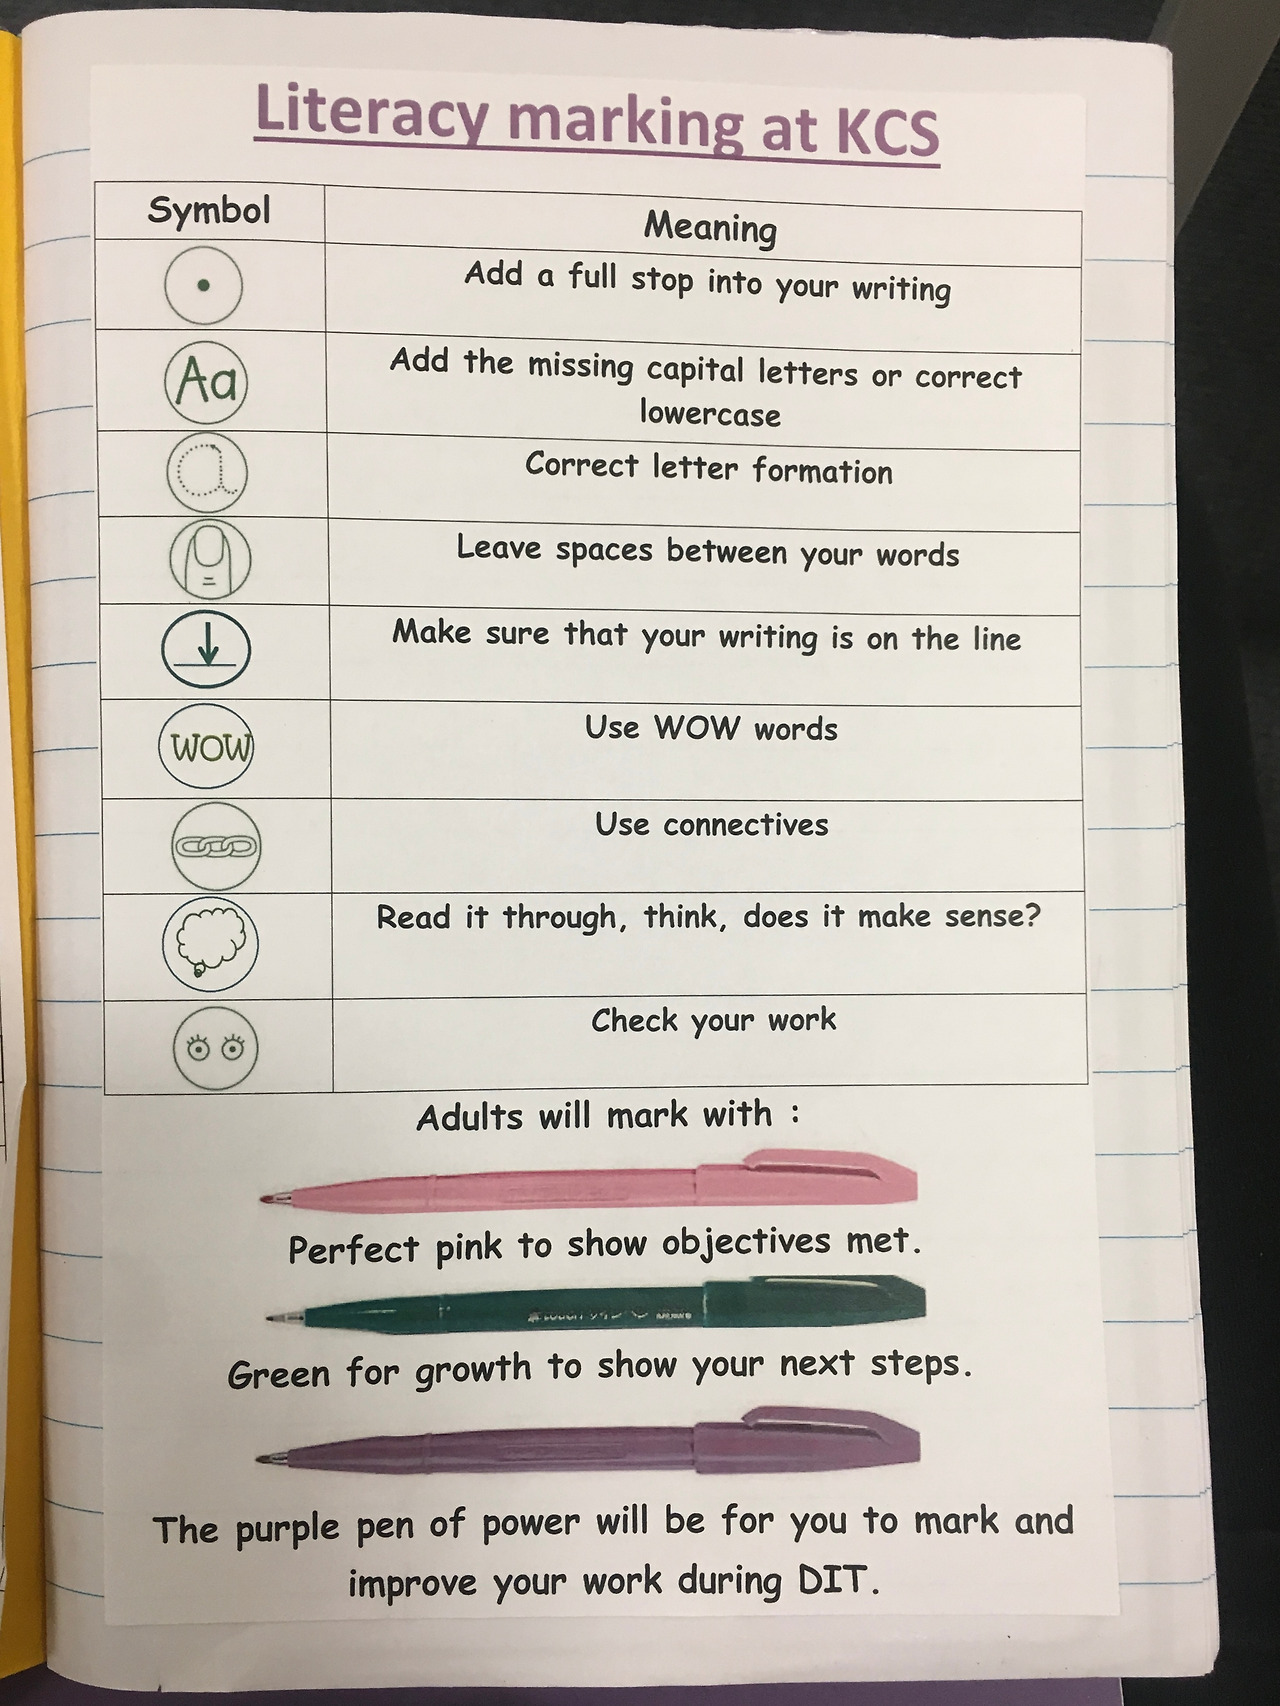 Literacy marking at KCS
Symbol
Meaning
Add a full stop into your writing
Aa
Add the missing capital letters or correct
lowercase
a
Correct letter formation
Leave spaces between your words
Make sure that your writing is on the line
WOW
Use WOW words
Use connectives
Read it through, think, does it make sense?
Check your work
Adults will mark with :
Perfect pink to show objectives met.
Green for growth to show your next steps.
The purple pen of power will be for you to mark and
improve your work during DIT.